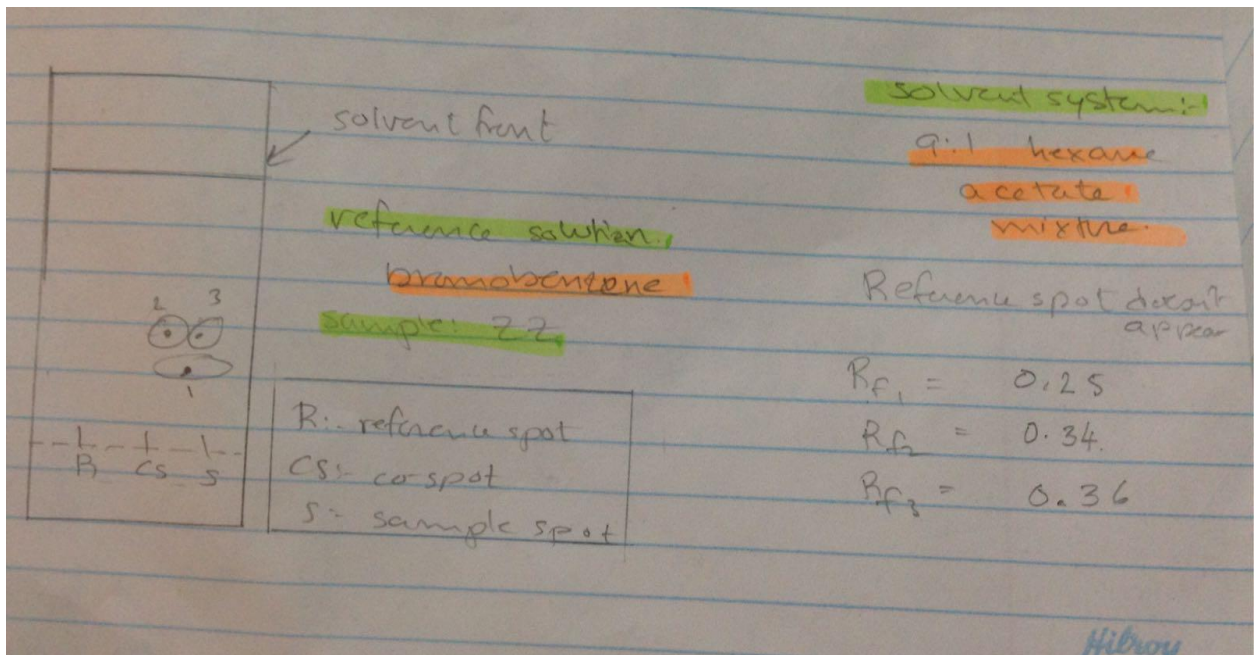 solvent front
reference solution:
bromobenzene
sample: ZZ
R:- reference spot
CS:- co-spot
S:- sample spot
2 3
1
R CS S
solvent system:-
9:1 hexane
acetate
mixture.
Reference spot doesn't
appear
Rf1 = 0.25
Rf2 = 0.34.
Rf3 = 0.36
Hilroy